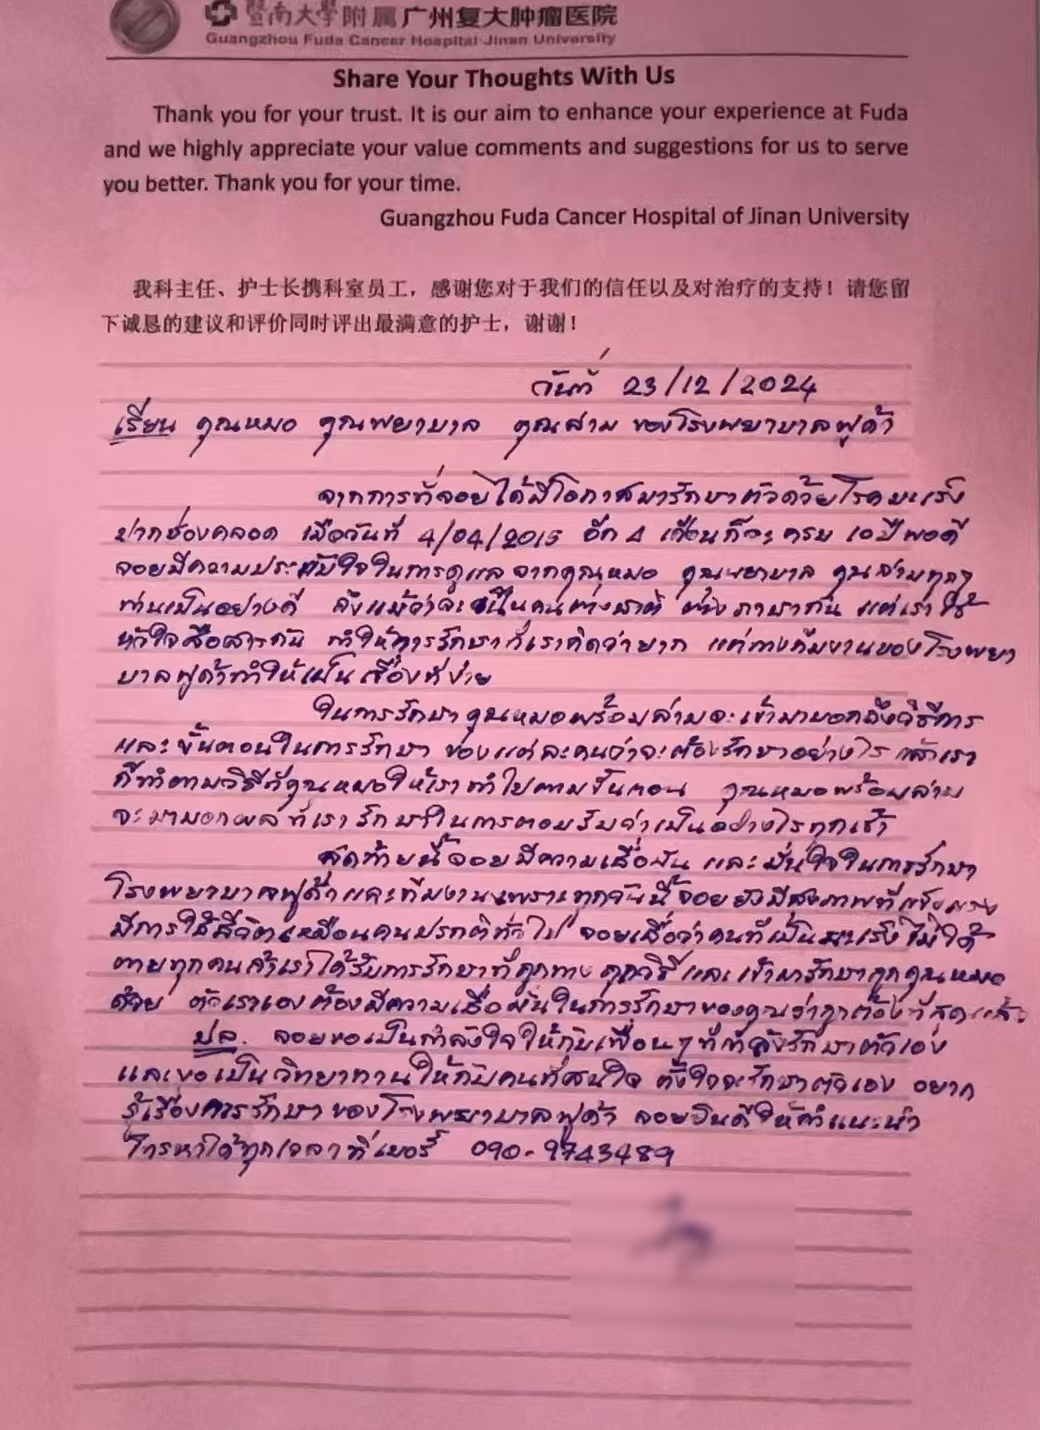 暨南大学附属广州复大肿瘤医院
Guangzhou Fuda Cancer Hospital Jinan University
Share Your Thoughts With Us
Thank you for your trust. It is our aim to enhance your experience at Fuda
and we highly appreciate your value comments and suggestions for us to serve
you better. Thank you for your time.
Guangzhou Fuda Cancer Hospital of Jinan University
我科主任、护士长携科室员工，感谢您对于我们的信任以及对治疗的支持！请您留
下诚恳的建议和评价同时评出最满意的护士，谢谢！
วันที่ 23/12/2024
เรียน คุณหมอ คุณพยาบาล คุณล่าม ของโรงพยาบาลฟูด้า
จากการที่จอยได้มีโอกาสมารักษาตัวด้วยโรคมะเร็ง
ปากช่องคลอด เมื่อวันที่ 4/04/2015 อีก 4 เดือนก็จะครบ 10 ปีพอดี
จอยมีความประทับใจในการดูแล จากคุณหมอ คุณพยาบาล คุณล่ามทุกๆ
ท่านเป็นอย่างดี ถึงแม้ว่าจะเป็นคนต่างชาติ ต่างภาษากัน แต่เราใช้
หัวใจสื่อสารกัน ทำให้การรักษาที่เราคิดว่ายาก แต่ทางทีมงานของโรงพยา
บาลฟูด้าทำให้เป็นเรื่องที่ง่าย
ในการรักษาคุณหมอพร้อมล่ามจะเข้ามาบอกถึงวิธีการ
และขั้นตอนในการรักษา ของแต่ละคนว่าจะต้องรักษาอย่างไร แล้วเรา
ก็ทำตามวิธีที่คุณหมอให้เราทำไปตามขั้นตอน คุณหมอพร้อมล่าม
จะมาบอกผลที่เรารักษาในการตอบรับว่าเป็นอย่างไรทุกเช้า
สุดท้ายนี้จอยมีความเชื่อมั่น และมั่นใจในการรักษา
โรงพยาบาลฟูด้าและทีมงานเพราะทุกวันนี้จอยยังมีสุขภาพที่แข็งแรง
มีการใช้ชีวิตเหมือนคนปรกติทั่วไป จอยเชื่อว่าคนที่เป็นมะเร็งไม่ได้
ตายทุกคนถ้าเราได้รับการรักษาที่ถูกทาง ถูกวิธีและเข้ามารักษาถูกคุณหมอ
ด้วย ตัวเราเองต้องมีความเชื่อมั่นในการรักษาของคุณว่าถูกต้องที่สุดแล้ว
ปล. จอยขอเป็นกำลังใจให้กับเพื่อนๆที่กำลังรักษาตัวเอง
และขอเป็นวิทยาทานให้กับคนที่สนใจ ตั้งใจจะรักษาตัวเอง อยาก
รู้เรื่องการรักษา ของโรงพยาบาลฟูด้า จอยยินดีให้คำแนะนำ
โทรหาได้ทุกเวลาที่เบอร์ 090-9743489